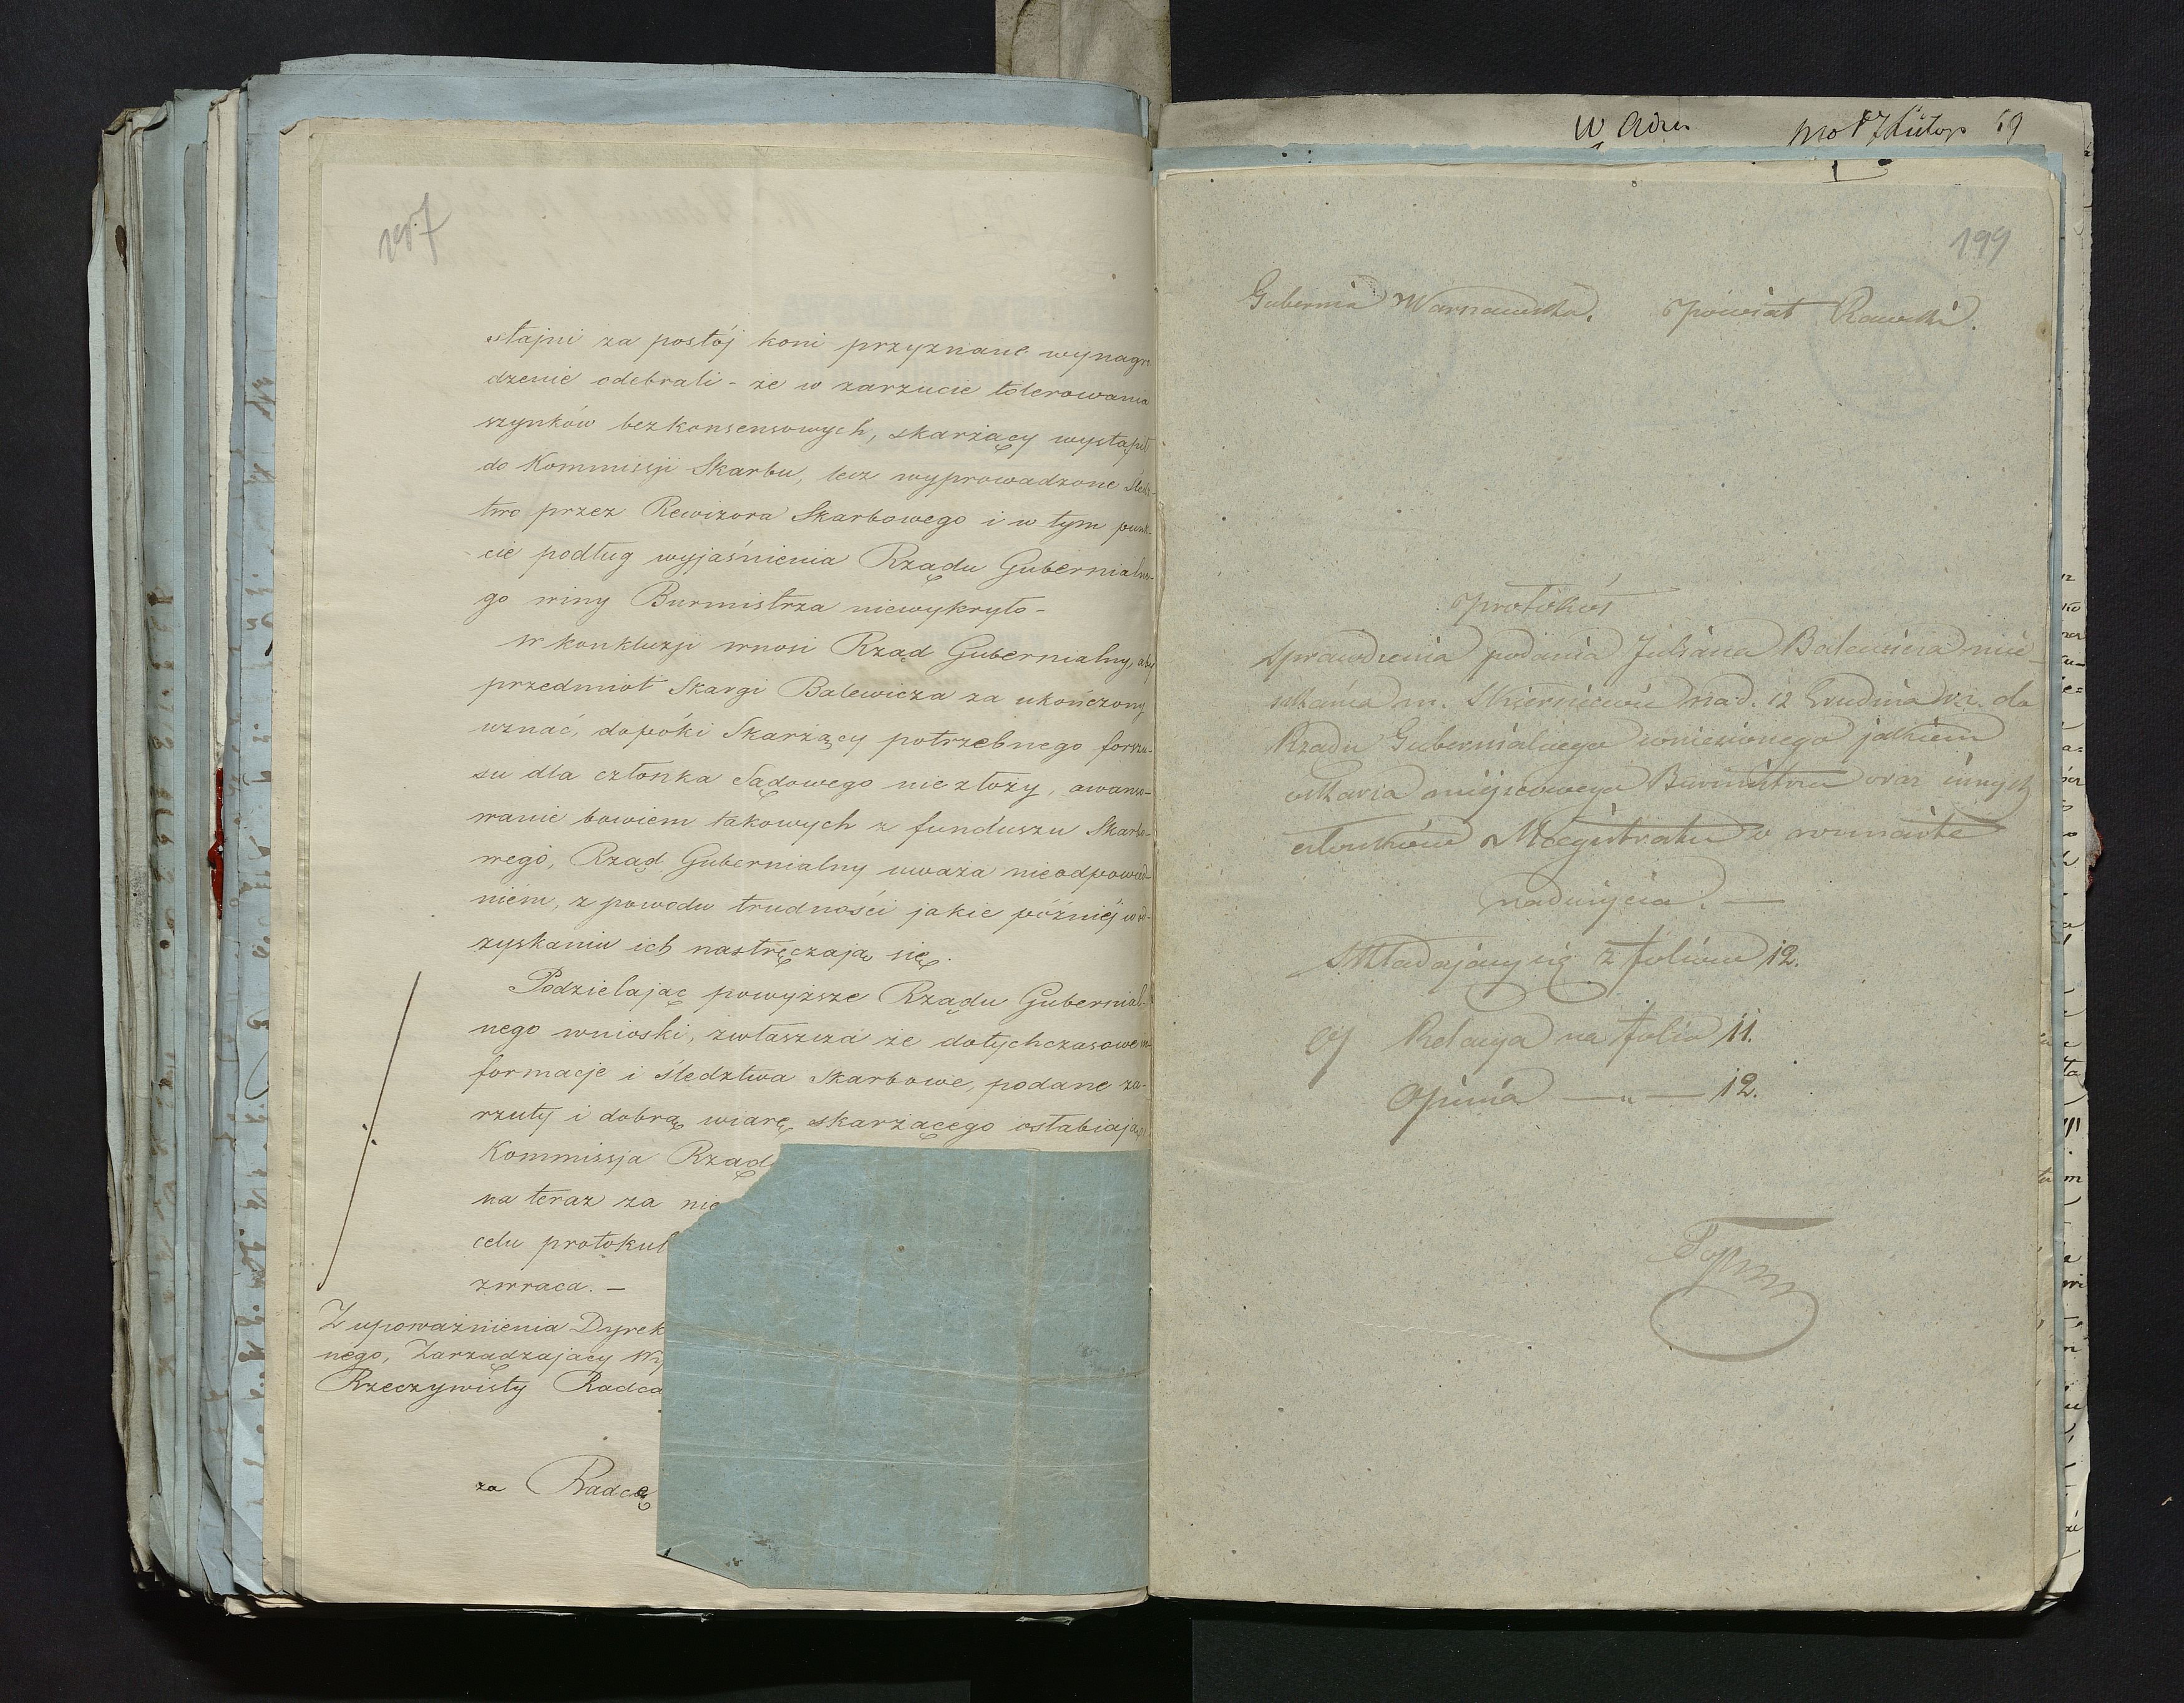 197
stajni za postój koni przyznane wynagro
dzenie odebrali - że w zarzucie tolerowania
szynków bezkonsensowych, skarżący wystąpił
do Kommissji Skarbu, lecz wyprowadzone śledz-
two przez Rewizora Skarbowego i w tym punk-
cie podług wyjaśnienia Rządu Gubernialne-
go winy Burmistrza niewykryto -
w konkluzji wnosi Rząd Gubernialny, aby
przedmiot Skargi Balewicza za ukończony
uznać, dopóki Skarżący potrzebnego forszu-
su dla członka Sądowego nie złoży, awanso-
wanie bowiem takowych z funduszu Skarbo-
wego, Rząd Gubernialny uważa nieodpowied-
niém, z powodu trudności jakie później w od-
zyskaniu ich nastręczają się.
Podzielając powyższe Rządu Gubernial-
nego wnioski, zwłaszcza że dotychczasowe in-
formacje i śledztwa Skarbowe, podane za-
rzuty i dobrą wiarę skarżącego osłabiają,
Kommissja Rząd
na teraz za nie
celu protokuł
zwraca. -
Z upoważnienia Dyrek
nego, Zarządzający Wy
Rzeczywisty Radca
za Radcę
W
199
Gubernia Warszawska. Powiat Rawski.
Protokół
sprawdzenia podania Juljana Balewicza miesz-
kańca m. Skierniewic na d. 12 Grudnia r.z. do
Rządu Gubernialnego wniesionego jakiem
oskarża miejscowego Burmistrza oraz innych
członków Magistratu o rozmaite
nadużycia. —
Składający się z foliów 12.
Relacya na folio 11.
Opinia —„— 12.